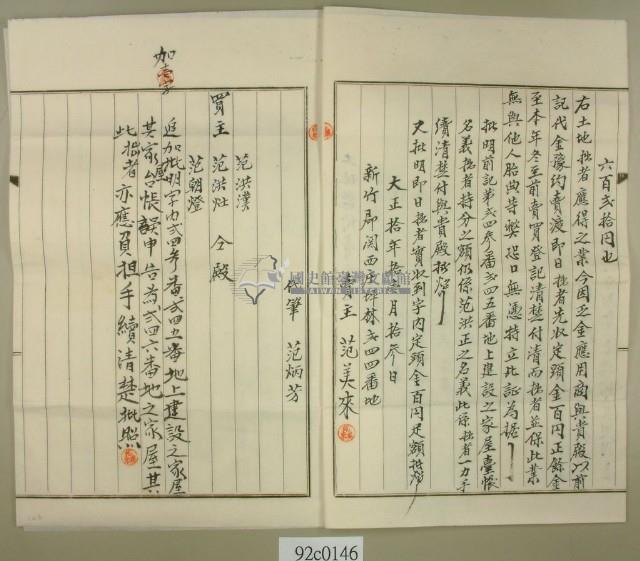 六百弐拾円也
右土地拙者應得之業今因乏金應用商與貴殿以前
記代金豫約賣渡即日拙者先收定頭金百円正餘金
至本年冬至前賣買登記清楚付清而拙者並保此業
無與他人胎典等弊恐口無憑特立此証為据
批明前記第弐四参番弐四五番地上建設之家屋臺帳
名義拙者持分之額仍係范洪正之名義此係拙者一力手
續清楚付與貴殿批照
又批明即日拙者實收到字內定頭金百円足額批照
大正拾年 月拾参日
新竹郡関西庄 林弐四四番地
賣主 范美來
代筆 范炳芳
買主 范洪漢
范洪灶 仝殿
范朝燈
追加批明字內弐四参番弐四五番地上建設之家屋
其家屋台帳誤申告為弐四六番地之家屋其
此拙者亦應負担手續清楚批照
加壹字
國史館臺灣文獻館
TAIWAN HISTORICA
92c0146